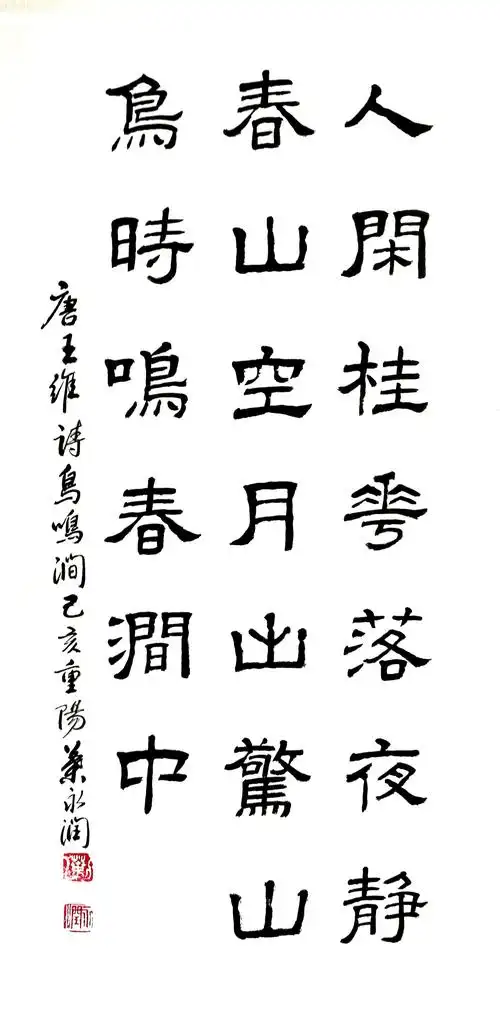 人閑桂花落夜静
春山空月出驚山
鳥時鳴春澗中
唐王維詩鳥鳴澗己亥重陽葉永潤